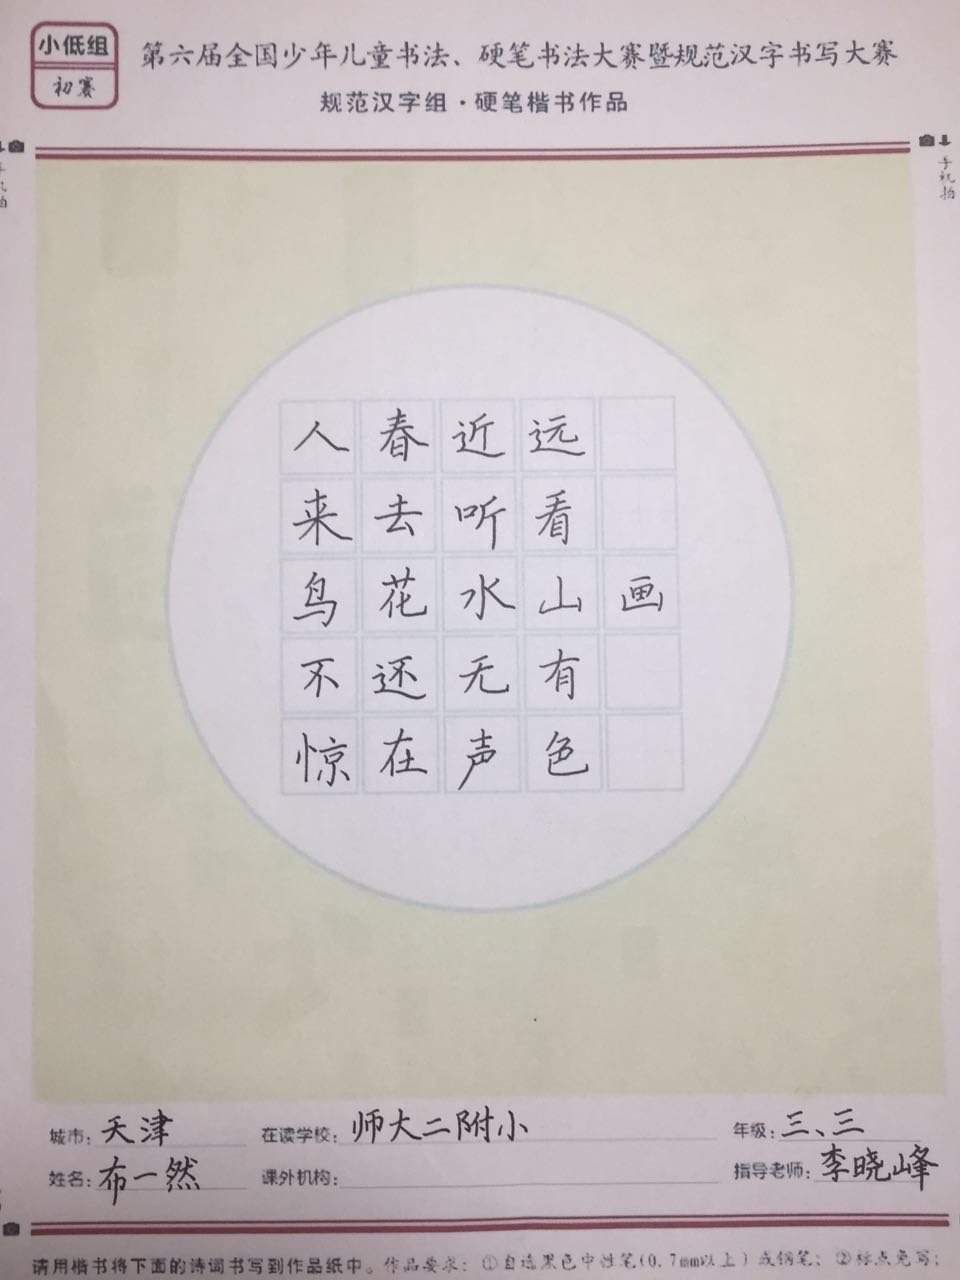 小低组
初赛
第六届全国少年儿童书法、硬笔书法大赛暨规范汉字书写大赛
规范汉字组·硬笔楷书作品
手机拍
画
远看山有色
近听水无声
春去花还在
人来鸟不惊
城市：天津
在读学校：师大二附小
年级：三、三
姓名：布一然
课外机构：
指导老师：李晓峰
请用楷书将下面的诗词书写到作品纸中。作品要求：①自选黑色中性笔(0.7mm以上)或钢笔；②标点免写；